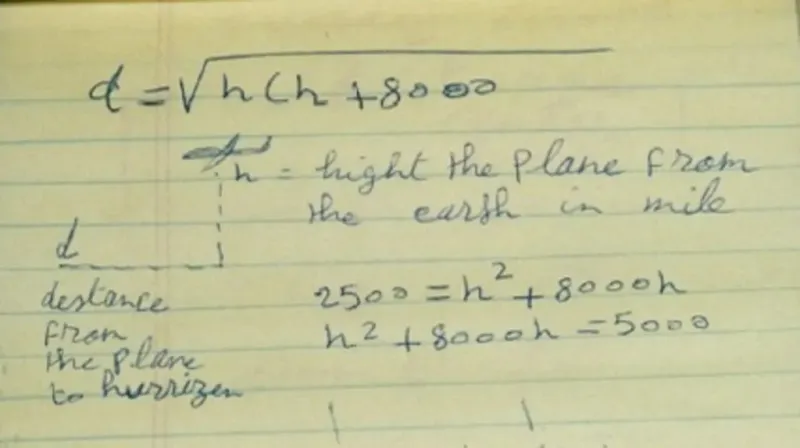 d = √h(h + 8000
h = hight the plane from
the earsh in mile
d
destance
from
the plane
to hurrizen
2500 = h² + 8000h
h² + 8000h = 5000